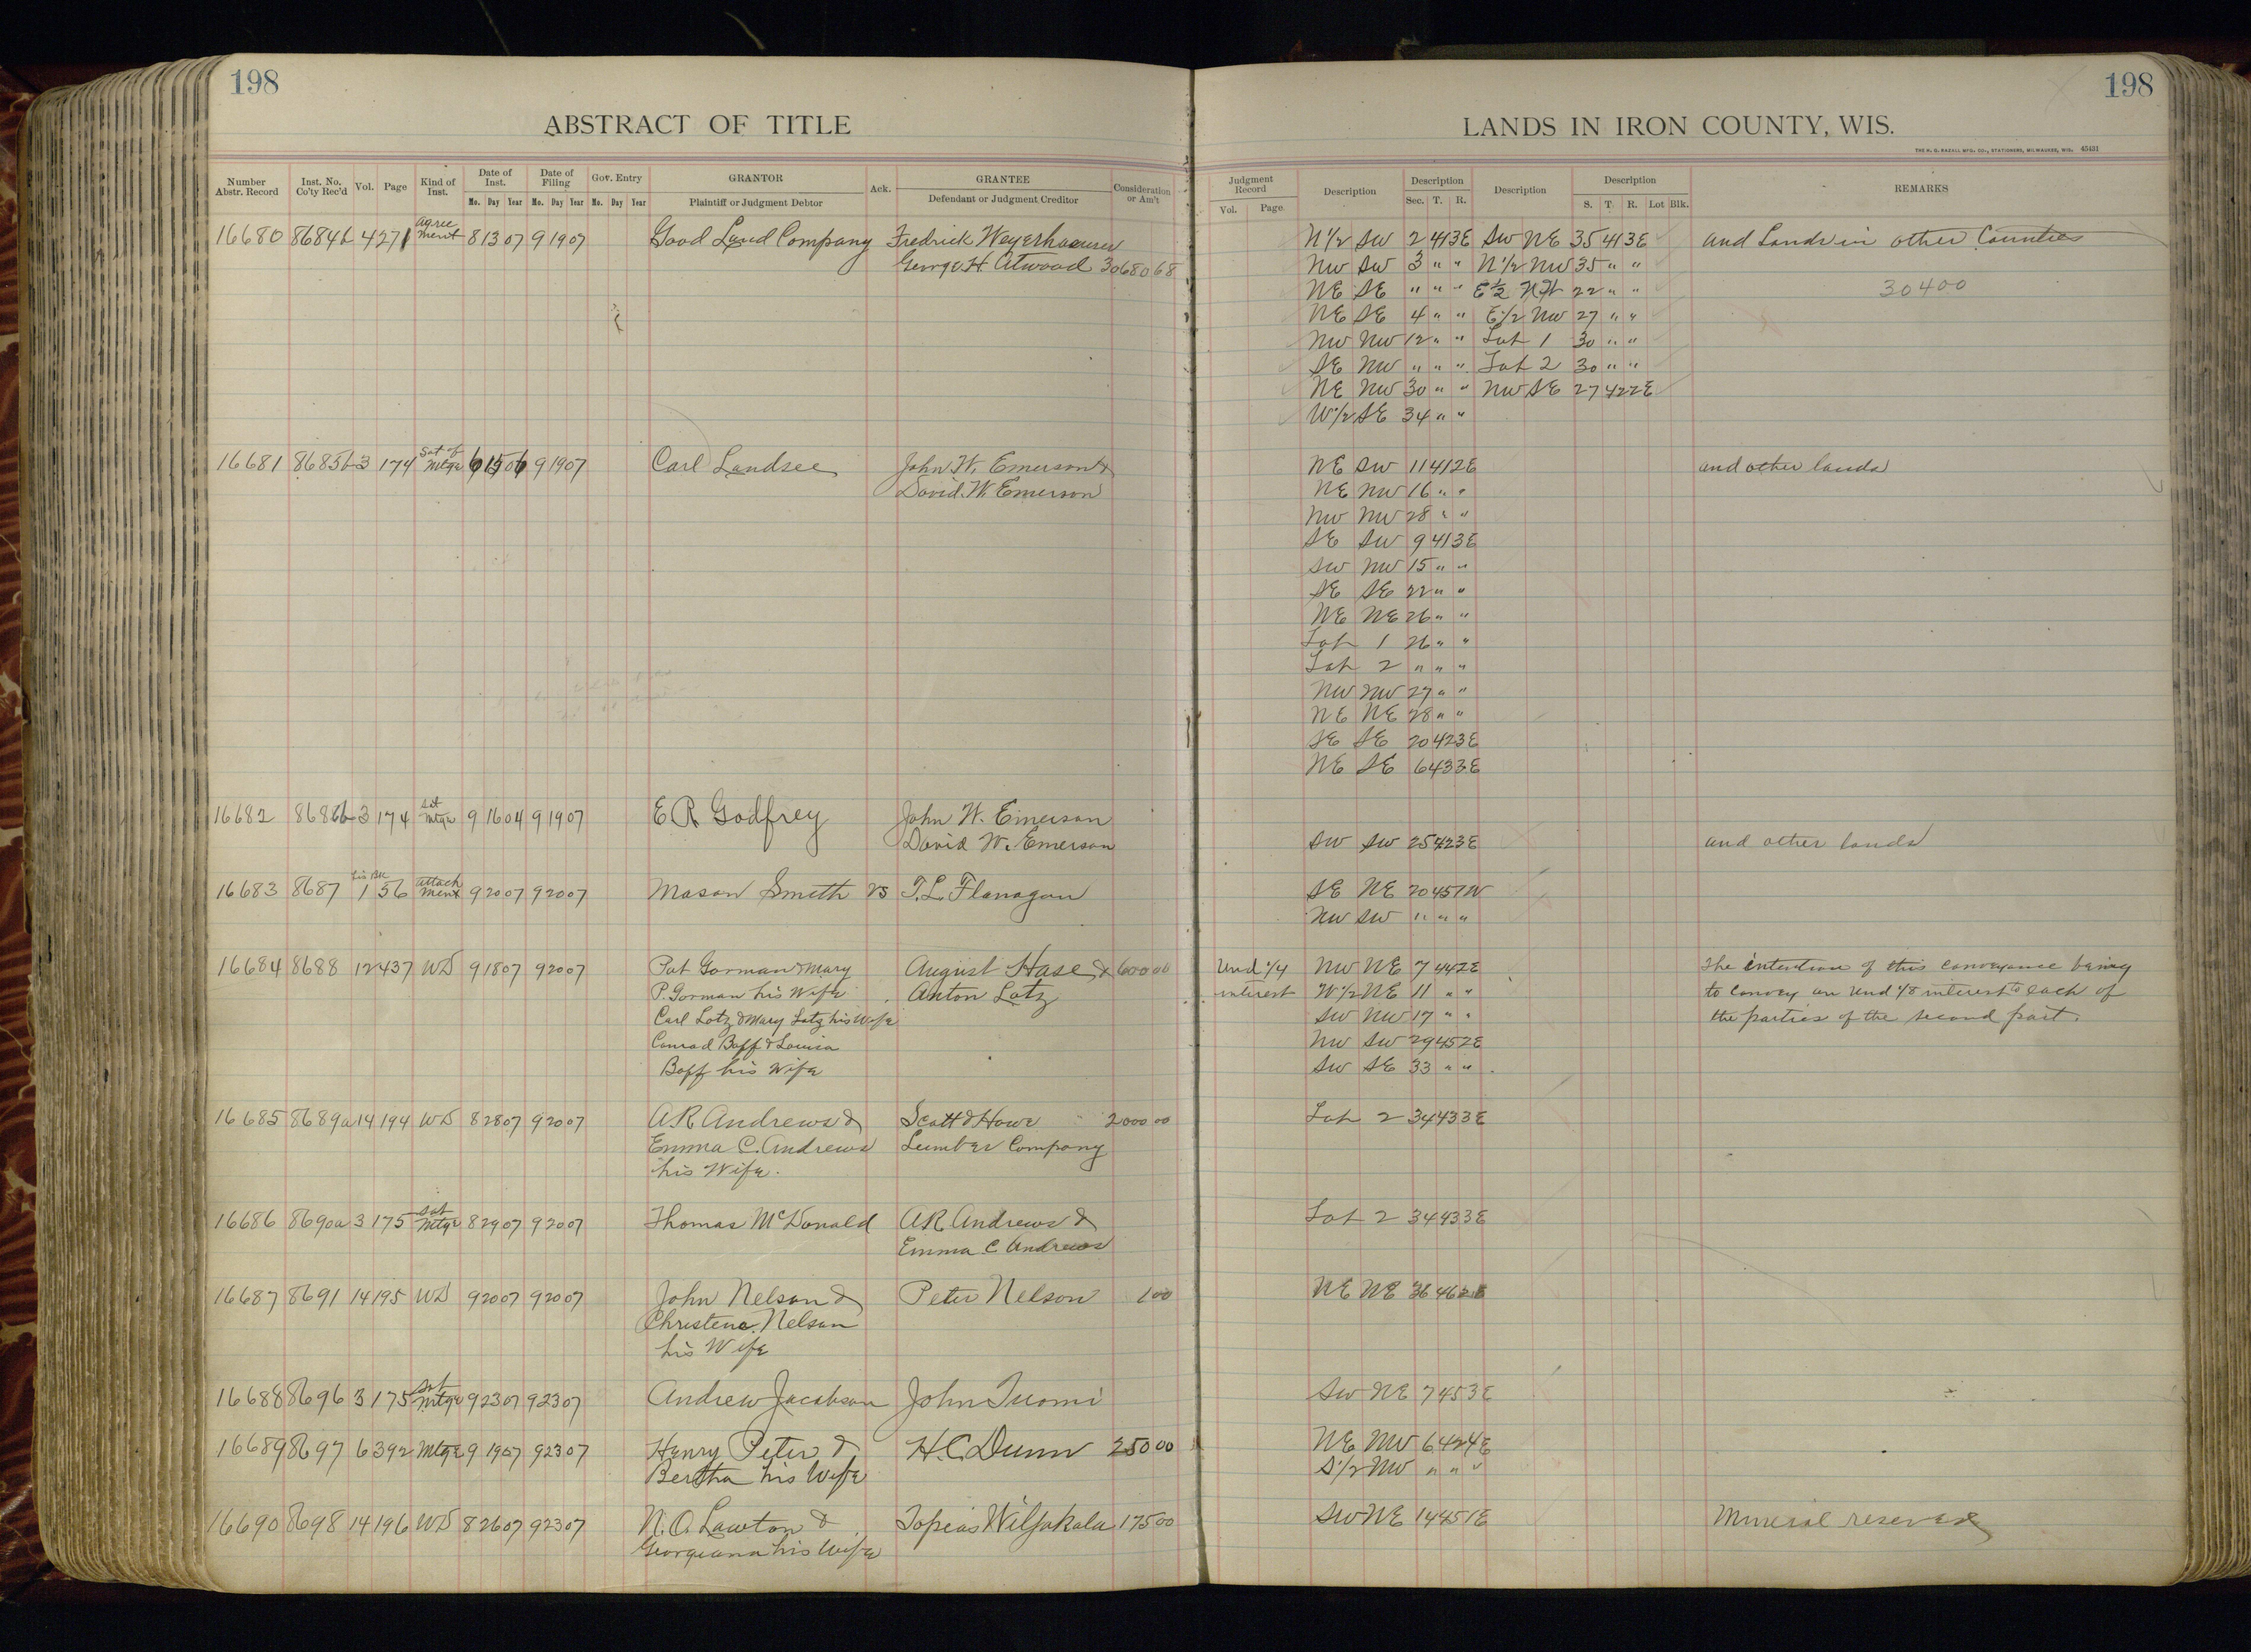 198
ABSTRACT OF TITLE
Number Abstr. Record | Inst. No. Co'ty Rec'd | Vol. | Page | Kind of Inst. | Date of Inst. Mo. Day Year | Date of Filing Mo. Day Year | Gov. Entry Mo. Day Year | GRANTOR Plaintiff or Judgment Debtor | Ack. | GRANTEE Defendant or Judgment Creditor | Consideration or Am't
16680 8684b 4 271 Agreement 8 13 07 9 19 07 Good Land Company Fredrick Weyerhaeuser
George H. Atwood 30680 68
16681 8685b 3 174 Sat of Mtge 6 15 06 9 19 07 Carl Landsee John W. Emerson &
David W. Emerson
16682 8686b 3 174 Sat Mtge 9 16 04 9 19 07 E R Godfrey John W. Emerson
David W. Emerson
16683 8687 Lis BK 1 56 Attachment 9 20 07 9 20 07 Mason Smith vs T. L. Flanagan
16684 8688 12 437 WD 9 18 07 9 20 07 Pat Gorman & Mary August Hase & 600 00
P. Gorman his Wife Anton Lotz
Carl Lotz & Mary Lotz his Wife
Conrad Boff & Louisa
Boff his Wife
16685 8689a 14 194 WD 8 28 07 9 20 07 A R Andrews & Scott & Howe 2000 00
Emma C. Andrews Lumber Company
his Wife.
16686 8690a 3 175 Sat Mtge 8 29 07 9 20 07 Thomas McDonald A R Andrews &
Emma C Andrews
16687 8691 14 195 WD 9 20 07 9 20 07 John Nelson & Peter Nelson 1 00
Christene Nelson
his Wife
16688 8696 3 175 Sat Mtge 9 23 07 9 23 07 Andrew Jacobson John Tuomi
16689 8697 6 392 Mtge 9 19 07 9 23 07 Henry Peter & H. C. Dunn 250 00
Bertha his Wife
16690 8698 14 196 WD 8 26 07 9 23 07 N. O. Lawton & Topias Wiljakala 175 00
Georgeana his Wife
198
LANDS IN IRON COUNTY, WIS.
THE H. G. RAZALL MFG. CO., STATIONERS, MILWAUKEE, WIS. 45431
Judgment Record Vol. Page | Description | Description Sec. T. R. | Description | Description S. T. R. Lot Blk. | REMARKS
N 1/2 SW 2 41 3E SW NE 35 41 3E and Lands in other Counties
NW SW 3 " " N 1/2 NW 35 " "
NE SE " " " E 1/2 22 " " 30400
NE SE 4 " " E 1/2 NW 27 " "
NW NW 12 " " Lot 1 30 " "
SE NW " " " Lot 2 30 " "
NE NW 30 " " NW SE 27 42 2E
W 1/2 SE 34 " "
NE SW 11 41 2E and other lands
NE NW 16 " "
NW NW 28 " "
SE SW 9 41 3E
SW NW 15 " "
SE SE 22 " "
NE NE 26 " "
Lot 1 26 " "
Lot 2 " " "
NW NW 27 " "
NE NE 28 " "
SE SE 20 42 3E
NE SE 6 43 3E
SW SW 25 42 3E and other lands
SE NE 20 45 1W
NW SW " " "
Und 1/4 NW NE 7 44 2E The intention of this conveyance being
interest W 1/2 NE 11 " " to convey an Und 1/8 interest to each of
SW NW 17 " " the parties of the second part.
NW SW 29 45 2E
SW SE 33 " "
Lot 2 34 43 3E
Lot 2 34 43 3E
NE NE 36 46 2E
SW NE 7 45 3E
NE NW 6 42 4E
S 1/2 NW " " "
SW NE 14 45 1E Mineral reserved